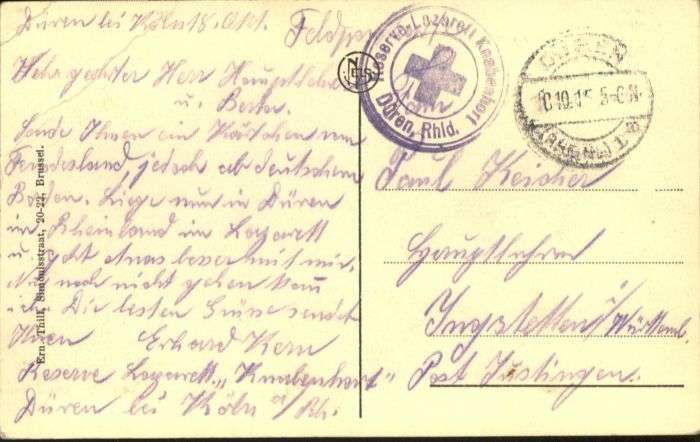 Düren bei Köln 18. Okt.
Sehr geehrter Herr Hauptlehrer
u. Berta.
Sende Ihnen ein Kärtchen vom
Feindesland, jedoch ab deutschem
Boden. Liege nun in Düren
im Rheinland im Lazarett
u. geht etwas besser mit mir.
Nur noch nicht gehen kann
ich. Die besten Grüsse sendet
Ihnen Erhard Kern
Reserve Lazarett „Knabenhort“
Düren bei Köln a/Rh.
Feldpost
Reserve-Lazarett Knabenhort
Düren, Rhld.
NELS
DÜREN
10.15 5-6 N
(RHEINL.) 1
Paul Keicher
Hauptlehrer
Ingstetten Württemb.
Post Justingen.
Ern. Thill, Simonisstraat, 20-22, Brussel.